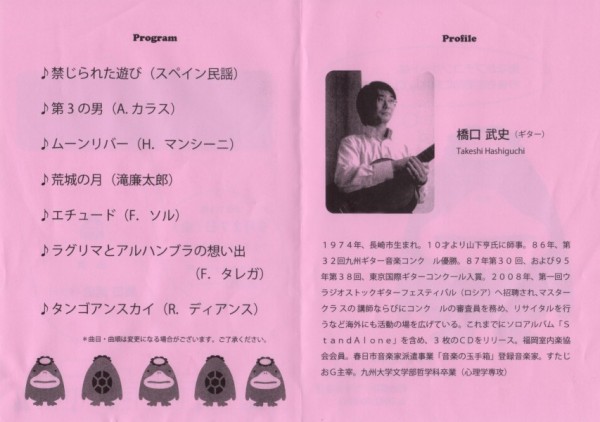 Program
♪禁じられた遊び（スペイン民謡）
♪第３の男（A. カラス）
♪ムーンリバー（H. マンシーニ）
♪荒城の月（滝廉太郎）
♪エチュード（F. ソル）
♪ラグリマとアルハンブラの想い出
（F. タレガ）
♪タンゴアンスカイ（R. ディアンス）
＊曲目・曲順は変更になる場合がございます。ご了承ください。
Profile
橋口 武史（ギター）
Takeshi Hashiguchi
１９７４年、長崎市生まれ。１０才より山下亨氏に師事。８６年、第
３２回九州ギター音楽コンク　ル優勝。８７年第３０回、および９５
年第３８回、東京国際ギターコンクール入賞。２００８年、第一回ウ
ラジオストックギターフェスティバル（ロシア）へ招聘され、マスター
クラスの講師ならびにコンク　ルの審査員を務め、リサイタルを行
うなど海外にも活動の場を広げている。これまでにソロアルバム「Ｓ
ｔａｎｄＡｌｏｎｅ」を含め、３枚のＣＤをリリース。福岡室内楽協
会会員。春日市音楽家派遣事業「音楽の玉手箱」登録音楽家。すたじ
おＧ主宰。九州大学文学部哲学科卒業（心理学専攻）